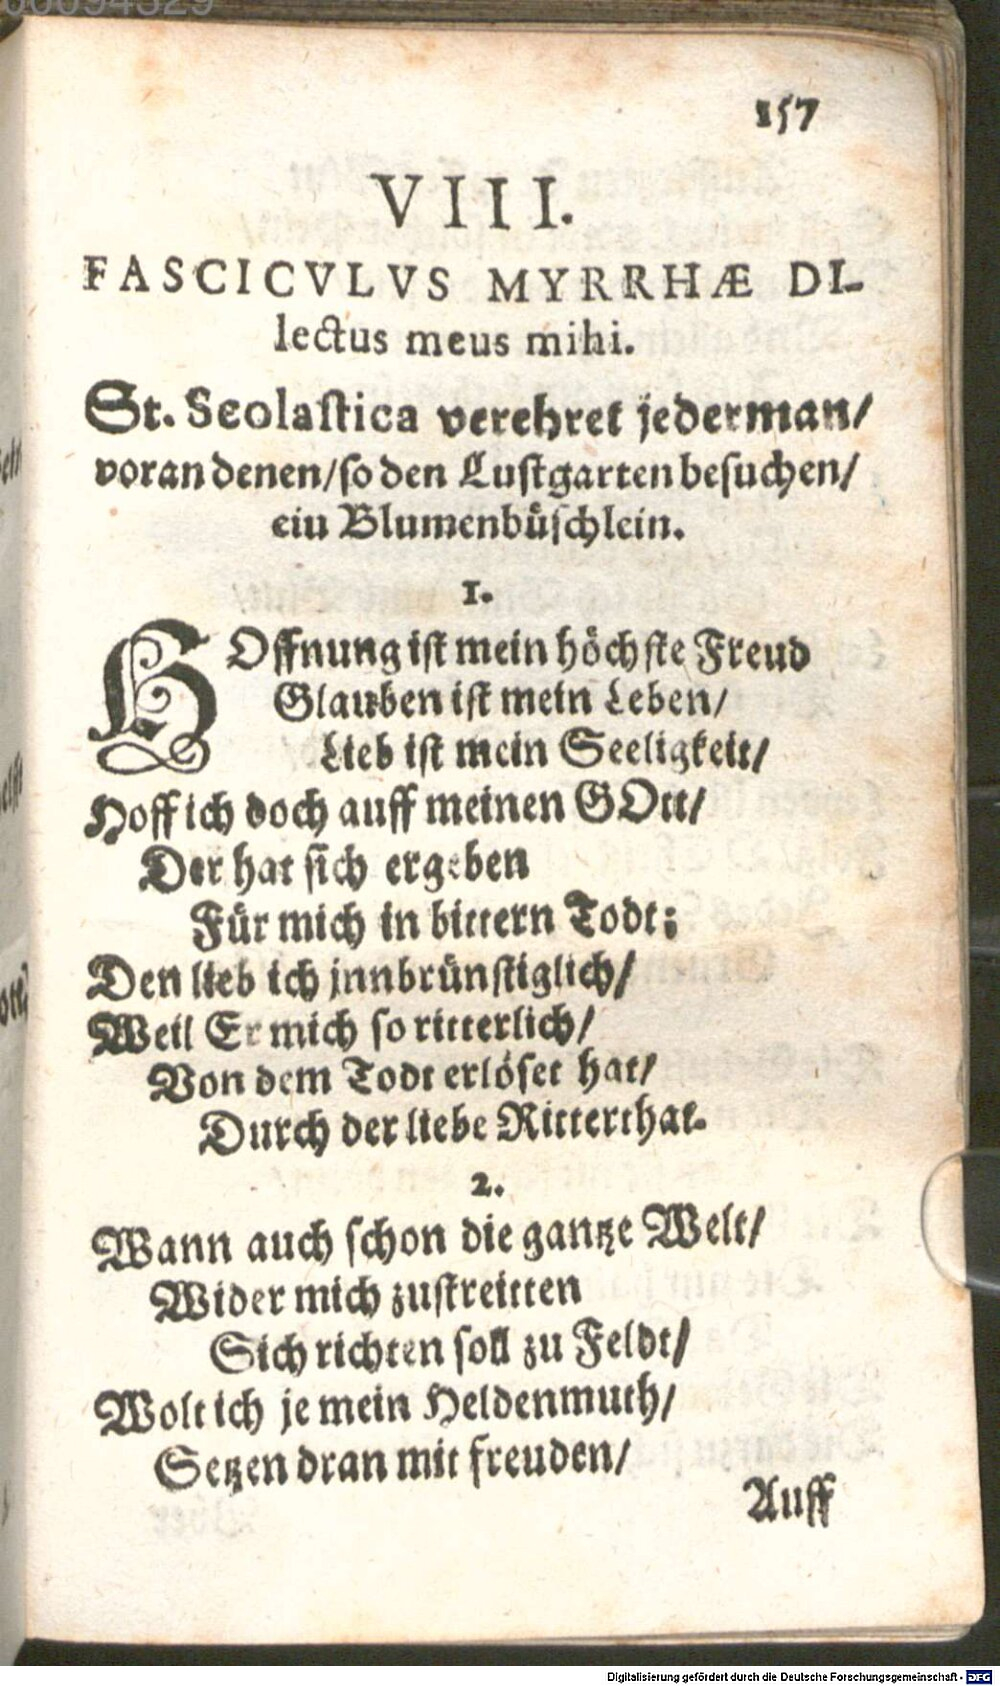 157
VIII.
FASCICVLVS MYRRHÆ DI-
lectus meus mihi.
St. Scolastica verehret jederman/
voran denen/so den Lustgarten besuchen/
ein Blumenbüschlein.
1.
HOffnung ist mein höchste Freud
Glauben ist mein Leben/
Lieb ist mein Seeligkeit/
Hoff ich doch auff meinen GOtt/
Der hat sich ergeben
Für mich in bittern Todt;
Den lieb ich jnnbrünstiglich/
Weil Er mich so ritterlich/
Von dem Todt erlöset hat/
Durch der liebe Ritterthat.
2.
Wann auch schon die gantze Welt/
Wider mich zustreitten
Sich richten soll zu Feldt/
Wolt ich je mein Heldenmuth/
Setzen dran mit freuden/
Auff
Digitalisierung gefördert durch die Deutsche Forschungsgemeinschaft - DFG